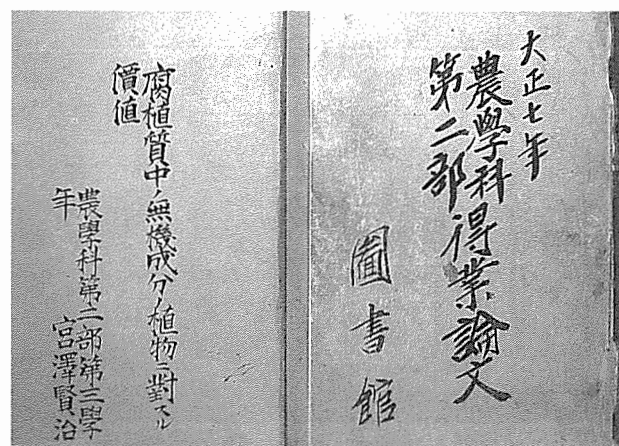 大正七年
農學科第二部得業論文
圖書館
腐植質中ノ無機成分ノ植物ニ對スル
價値
農學科第二部第三學
年
宮澤賢治